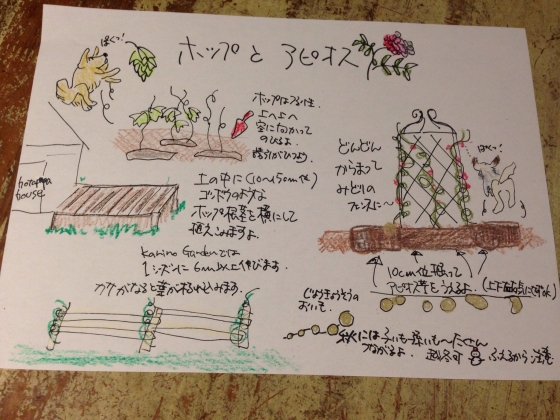 ホップと アピオス
ぱくっ!
ホップはつる性。
上へ上へ
空に向かって
のびるよ。
誘引がひつよう。
土の中に(10〜15cm位)
ゴボウのような
ホップ根茎を横にして
植えこみますよ。
hotappa
house
Karino Gardenでは
1シーズンに6m以上伸びます。
カゲがなると葉が
どんどん
からまって
みどりの
フェンスに〜
ぱくっ!
10cm位掘って
アピオス芋をうえるよ。
じょうきょうそうの
おいも。
秋には子いも・孫いも〜たくさん
つながるよ。
越冬可
ふえるから注意